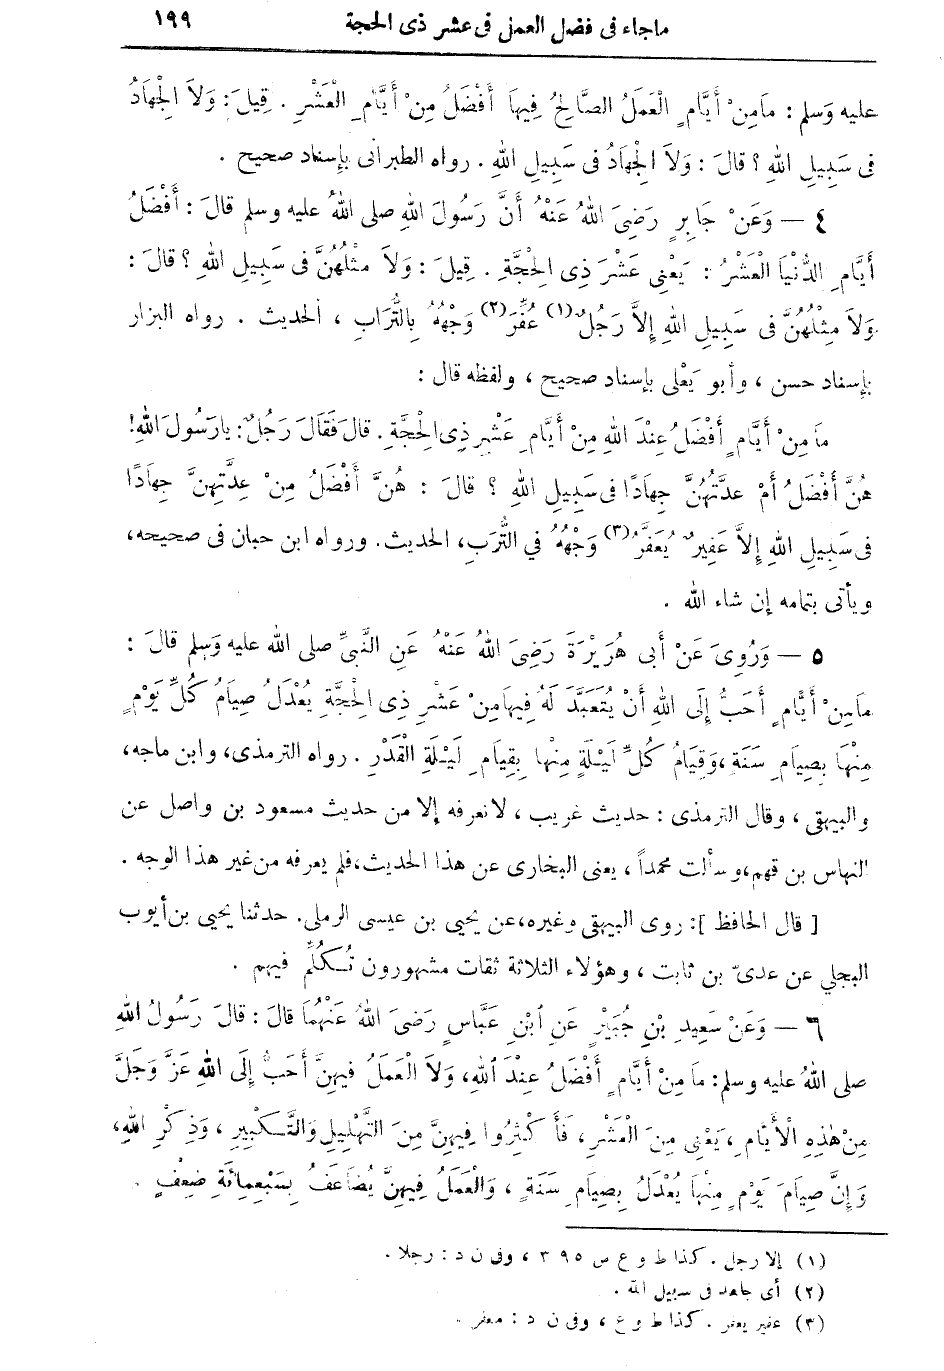 ماجاء فى فضل العمل فى عشر ذى الحجة ١٩٩
عليه وَسلم : مَامِنْ أَيَّامٍ الْعَمَلُ الصَّالِحُ فِيهَا أَفْضَلُ مِنْ أَيَّامِ الْعَشْرِ . قِيلَ : وَلاَ الْجِهَادُ
فى سَبِيلِ اللهِ ؟ قالَ : وَلاَ الْجِهَادُ فى سَبِيلِ اللهِ . رواه الطبرانى بإسناد صحيح .
٤ — وَعَنْ جَابِرٍ رَضِىَ اللهُ عَنْهُ أَنَّ رَسُولَ اللهِ صلى اللهُ عليه وسلم قالَ : أَفْضَلُ
أَيَّامِ الدُّنْيَا الْعَشْرُ : يَعْنِى عَشْرَ ذِى الْحِجَّةِ . قِيلَ : وَلاَ مثْلُهُنَّ فى سَبِيلِ اللهِ ؟ قالَ :
وَلاَ مِثْلُهُنَّ فى سَبِيلِ اللهِ إِلاَّ رَجُلٌ (١) عُفِّرَ (٢) وَجْهُهُ بِالتُّرَابِ ، الحديث . رواه البزار
بإسناد حسن ، وأبو يَعْلى بإسناد صحيح ، ولفظه قال :
مَا مِنْ أَيَّامٍ أَفْضَلُ عِنْدَ اللهِ مِنْ أَيَّامِ عَشْرِ ذِى الْحِجَّةِ . قالَ فَقَالَ رَجُلٌ : يا رَسُولَ اللهِ!
هُنَّ أَفْضَلُ أَمْ عدَّتُهُنَّ جِهادًا فى سَبِيلِ اللهِ ؟ قالَ : هُنَّ أَفْضَلُ مِنْ عِدَّتِهِنَّ جِهَادًا
فى سَبِيلِ اللهِ إِلاَّ عَفِيرٌ يُعَفَّرُ (٣) وَجْهُهُ فِي التُّرَبِ، الحديث. ورواه ابن حبان فى صحيحه،
ويأتى بتمامه إن شاء الله .
٥ — وَرُوِىَ عَنْ أَبى هُرَيْرَةَ رَضِىَ اللهُ عَنْهُ عَنِ النَّبِىِّ صلى الله عليه وَسلم قالَ :
مَا مِنْ أَيَّامٍ أَحَبُّ إِلَى اللهِ أَنْ يُتَعَبَّدَ لَهُ فِيهَا مِنْ عَشْرِ ذِى الْحِجَّةِ يُعْدَلُ صِيَامُ كُلِّ يَوْمٍ
مِنْهَا بِصِيَامِ سَنَةٍ ، وَقِيَامُ كُلِّ لَيْلَةٍ مِنْها بِقِيَامِ لَيْلَةِ الْقَدْرِ . رواه الترمذى، وابن ماجه،
والبيهقى ، وقال الترمذى : حديث غريب ، لا نعرفه إلا من حديث مسعود بن واصل عن
النهاس بن قهم، وسألت محمداً ، يعنى البخارى عن هذا الحديث، فلم يعرفه من غير هذا الوجه .
[ قال الحافظ ]: روى البيهقى وغيره، عن يحيى بن عيسى الرملي. حدثنا يحيى بن أيوب
البجلي عن عدىّ بن ثابت ، وهؤلاء الثلاثة ثقات مشهورون تُكُلِّمَ فيهم .
٦ — وَعَنْ سَعِيدِ بْنِ جُبَيْرٍ عَنِ ابْنِ عَبَّاسٍ رَضِىَ اللهُ عَنْهُمَا قالَ : قالَ رَسُولُ اللهِ
صلى اللهُ عليه وسلم : مَا مِنْ أَيَّامٍ أَفْضَلُ عِنْدَ اللهِ، وَلاَ الْعَمَلُ فِيهِنَّ أَحَبُّ إِلَى اللهِ عَزَّ وَجَلَّ
مِنْ هٰذِهِ الْأَيَّامِ ، يَعْنِى مِنَ الْعَشْرِ ، فَأَكْثِرُوا فِيهِنَّ مِنَ التَّهْلِيلِ وَالتَّكْبِيرِ ، وَذِكْرِ اللهِ،
وَإِنَّ صِيَامَ يَوْمٍ مِنْهَا يُعْدَلُ بِصِيَامِ سَنَةٍ ، وَالْعَمَلُ فِيهِنَّ يُضَاعَفُ بِسَبْعِمِائَةِ ضِعْفٍ .
(١) إلا رجل . كذا ط و ع ص ٣٩٥ ، وفى ن د : رجلا .
(٢) أى جاهد فى سبيل الله .
(٣) عفير يعفر . كذا ط و ع ، وفى ن د : معفر .